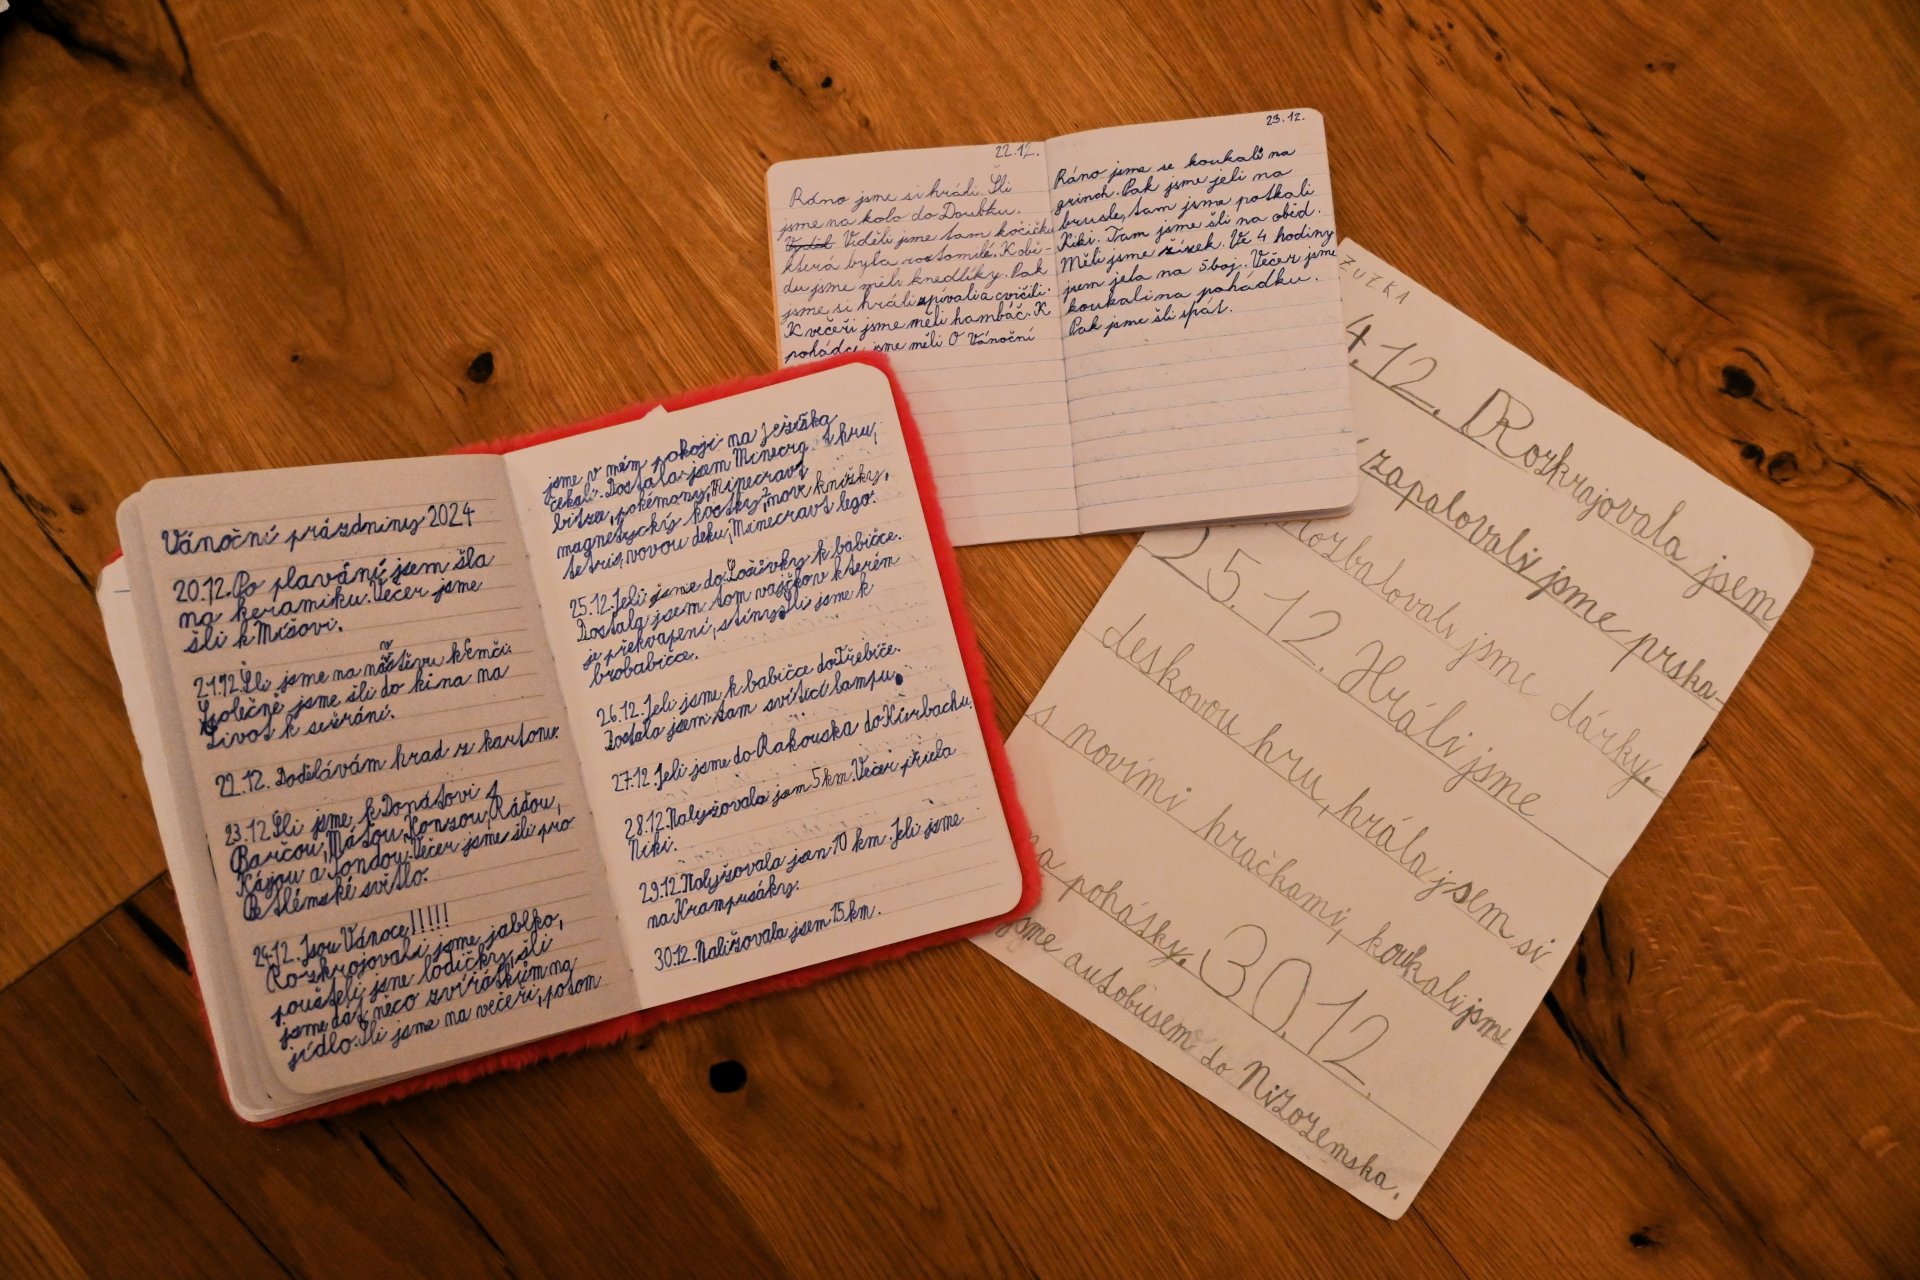 Vánoční prázdniny 2024
20.12. Po plavání jsem šla
na keramiku. Večer jsme
šli k Míšovi.
21.12. Šli jsme na náštěvu k Emči.
Společně jsme šli do kina na
Život k sežrání.
22.12. Dodělávám hrad z kartonu.
23.12. Šli jsme k Donátovi s
Barčou, Mátou, Honzou, Ráďou,
Kájou a Jondou. Večer jsme šli pro
Betlémské světlo.
24.12. Jsou Vánoce!!!!!
Rozkrojovali jsme jablko,
pouštěli jsme lodičky, šli
jsme dát něco zvířátkům na
jídlo. Šli jsme na večeři, potom
jsme v mém pokoji na Ježíška
čekali. Dostala jsem Minecraft hru,
pokémony, Minecravt
magnetycký kostky, nové knížky,
tetris, novou deku, Minecravt lego.
25.12. Jeli jsme do k babičce.
Dostala jsem tam vajíčkov kterém
je překvapení, stíny. Šli jsme k
brobabičce.
26.12. Jeli jsme k babičce do Třebíče.
Dostala jsem tam svítící lampu.
27.12. Jeli jsme do Rakouska do Kirbachu.
28.12. Nalyžovala jsm 5km. Večer přiela
Niki.
29.12. Nalyžovala jsen 10 km. Jeli jsme
na Krampusáky.
30.12. Nališovala jsem 15km.
22.12.
Ráno jsme si hráli. Šli
jsme na kolo do Doubku.
Viděli jsme tam kočičku
která byla roztomilé. K obě-
du jsme měli knedlíky. Pak
jsme si hráli spívali a cvičili.
K večeři jsme měli hambáč. K
pohádce jsme měli O Vánoční
23.12.
Ráno jsme se koukali na
grinch. Pak jsme jeli na
brusle, tam jsme potkali
Kiki. Tam jsme šli na oběd.
Měli jsme řízek. Ve 4 hodiny
jsem jela na 5boj. Večer jsme
koukali na pohádku.
Pak jsme šli spát.
ZUZKA
4.12. Rozkrajovala jsem
zapalovali jsme prska-
rozbalovali jsme dárky.
25.12. Hráli jsme
deskovou hru, hrála jsem si
s novími hračkami, koukali jsme
na pohátky. 30.12.
jsme autobusem do Nizozemska.